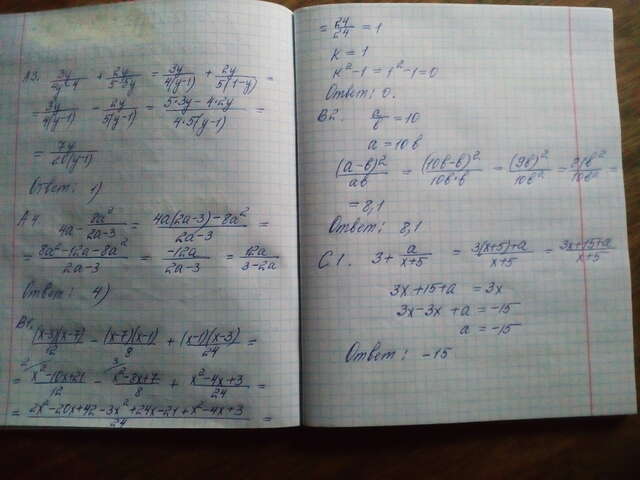 А3. 3y/4y-4 + 2y/5-5y = 3y/4(y-1) + 2y/5(1-y) =
3y/4(y-1) - 2y/5(y-1) = 5*3y-4*2y/4*5(y-1) =
= 7y/20(y-1)
Ответ: 1)
А4. 4a - 8a²/2a-3 = 4a(2a-3)-8a²/2a-3 =
= 8a²-12a-8a²/2a-3 = -12a/2a-3 = 12a/3-2a
Ответ: 4)
В1. (x-3)(x-7)/12 - (x-7)(x-1)/8 + (x-1)(x-3)/24 =
= x²-10x+21/12 - x²-8x+7/8 + x²-4x+3/24 =
= 2x²-20x+42-3x²+24x-21+x²-4x+3/24 =
= 24/24 = 1
K = 1
K²-1 = 1²-1=0
Ответ: 0.
В2. a/b = 10
a = 10b
(a-b)²/ab = (10b-b)²/10b*b = (9b)²/10b² = 81b²/10b² =
= 8,1
Ответ: 8,1
С1. 3+ a/x+5 = 3(x+5)+a/x+5 = 3x+15+a/x+5
3x+15+a = 3x
3x-3x+a = -15
a = -15
Ответ: -15